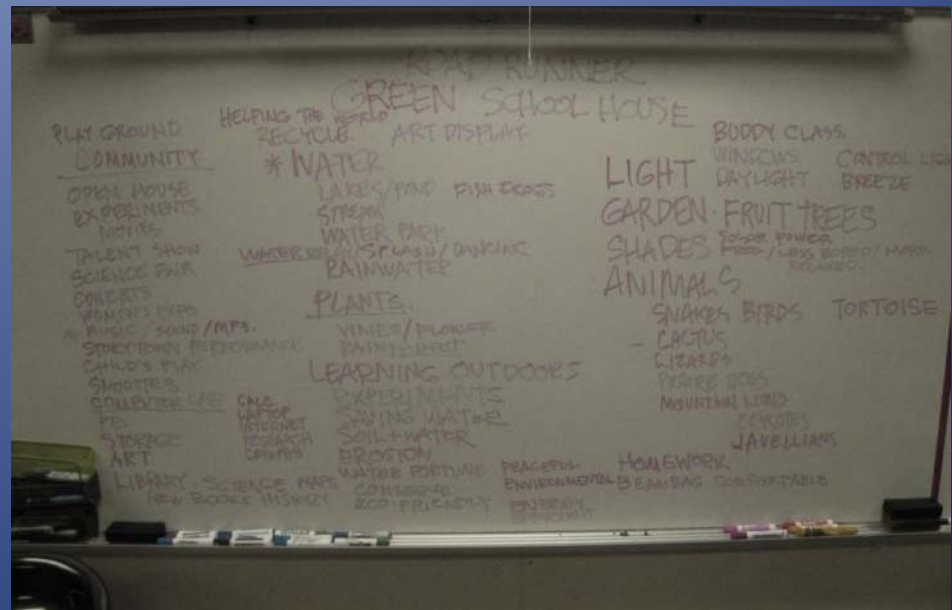 ROAD RUNNER
GREEN SCHOOL HOUSE
HELPING THE WORLD
PLAY GROUND
RECYCLE ART DISPLAY
COMMUNITY
OPEN HOUSE
EXPERIMENTS
MOVIES
TALENT SHOW
SCIENCE FAIR
CONCERTS
WOMEN'S EXPO
* MUSIC / SOUND / MP3.
STORYTOWN PERFORMANCE
CHILD'S PLAY
SMOOTHIES
COMPUTER LAB
STORAGE
ART
CALC.
LAPTOP
INTERNET
RESEARCH
LIBRARY SCIENCE MAPS
NEW BOOKS HISTORY
* WATER
LAKES/POND FISH FROGS
STREAM
WATER PARK
WATER SPLASH/DANCING
RAINWATER
PLANTS
VINES/FLOWER
RAINFOREST
LEARNING OUTDOORS
EXPERIMENTS
SAVING WATER
SOIL+WATER
EROSION
WATER FORTUNE
CONSERVE
ECO-FRIENDLY
PEACEFUL
ENVIRONMENTAL
ENERGY
BUDDY CLASS.
LIGHT
WINDOWS
DAYLIGHT
CONTROL
BREEZE
GARDEN - FRUIT TREES
SHADES
SOLAR POWER
/LESS BORED/MORE
RELAXED
ANIMALS
SNAKES BIRDS TORTOISE
- CACTUS
LIZARDS
PRAIRIE DOGS
MOUNTAIN LIONS
COYOTES
JAVELLIANS
HOMEWORK
BEAN BAG COMFORTABLE